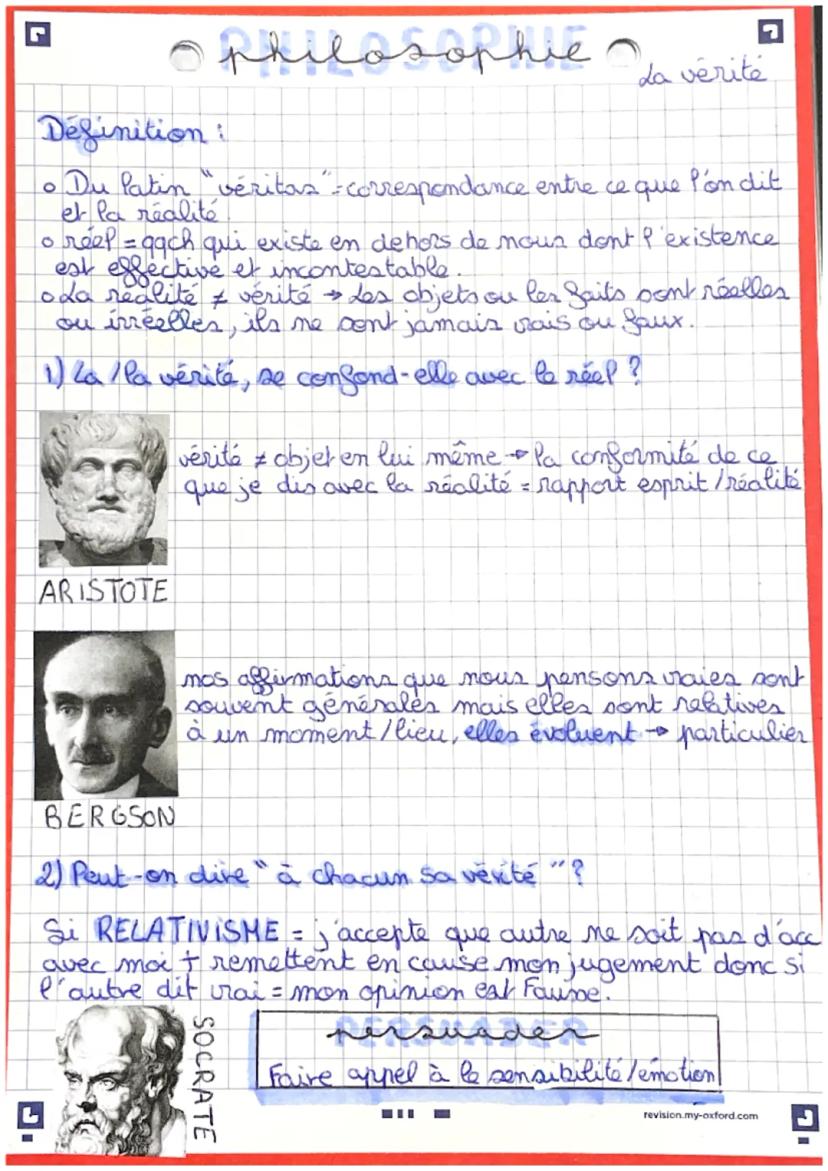 PHILOSOPHIE
philosophie
La vérité
Définition :
o Du latin "véritas" = correspondance entre ce que l'on dit
et la réalité.
o réel = qqch qui existe en dehors de nous dont l'existence
est effective et incontestable.
o La réalité ≠ vérité → Les objets ou les faits sont réelles
ou irréelles, ils ne sont jamais vrais ou faux.
1) La / la vérité, se confond-elle avec le réel ?
vérité ≠ objet en lui même → la conformité de ce
que je dis avec la réalité = rapport esprit / réalité
ARISTOTE
nos affirmations que nous pensons vraies sont
souvent générales mais elles sont relatives
à un moment / lieu, elles évoluent → particulier
BERGSON
2) Peut-on dire "à chacun sa vérité" ?
Si RELATIVISME = j'accepte que autre ne soit pas d'acc
avec moi + remettent en cause mon jugement donc si
l'autre dit vrai = mon opinion est Fausse.
SOCRATE
PERSUADER
persuader
Faire appel à la sensibilité/émotion
revision.my-oxford.com